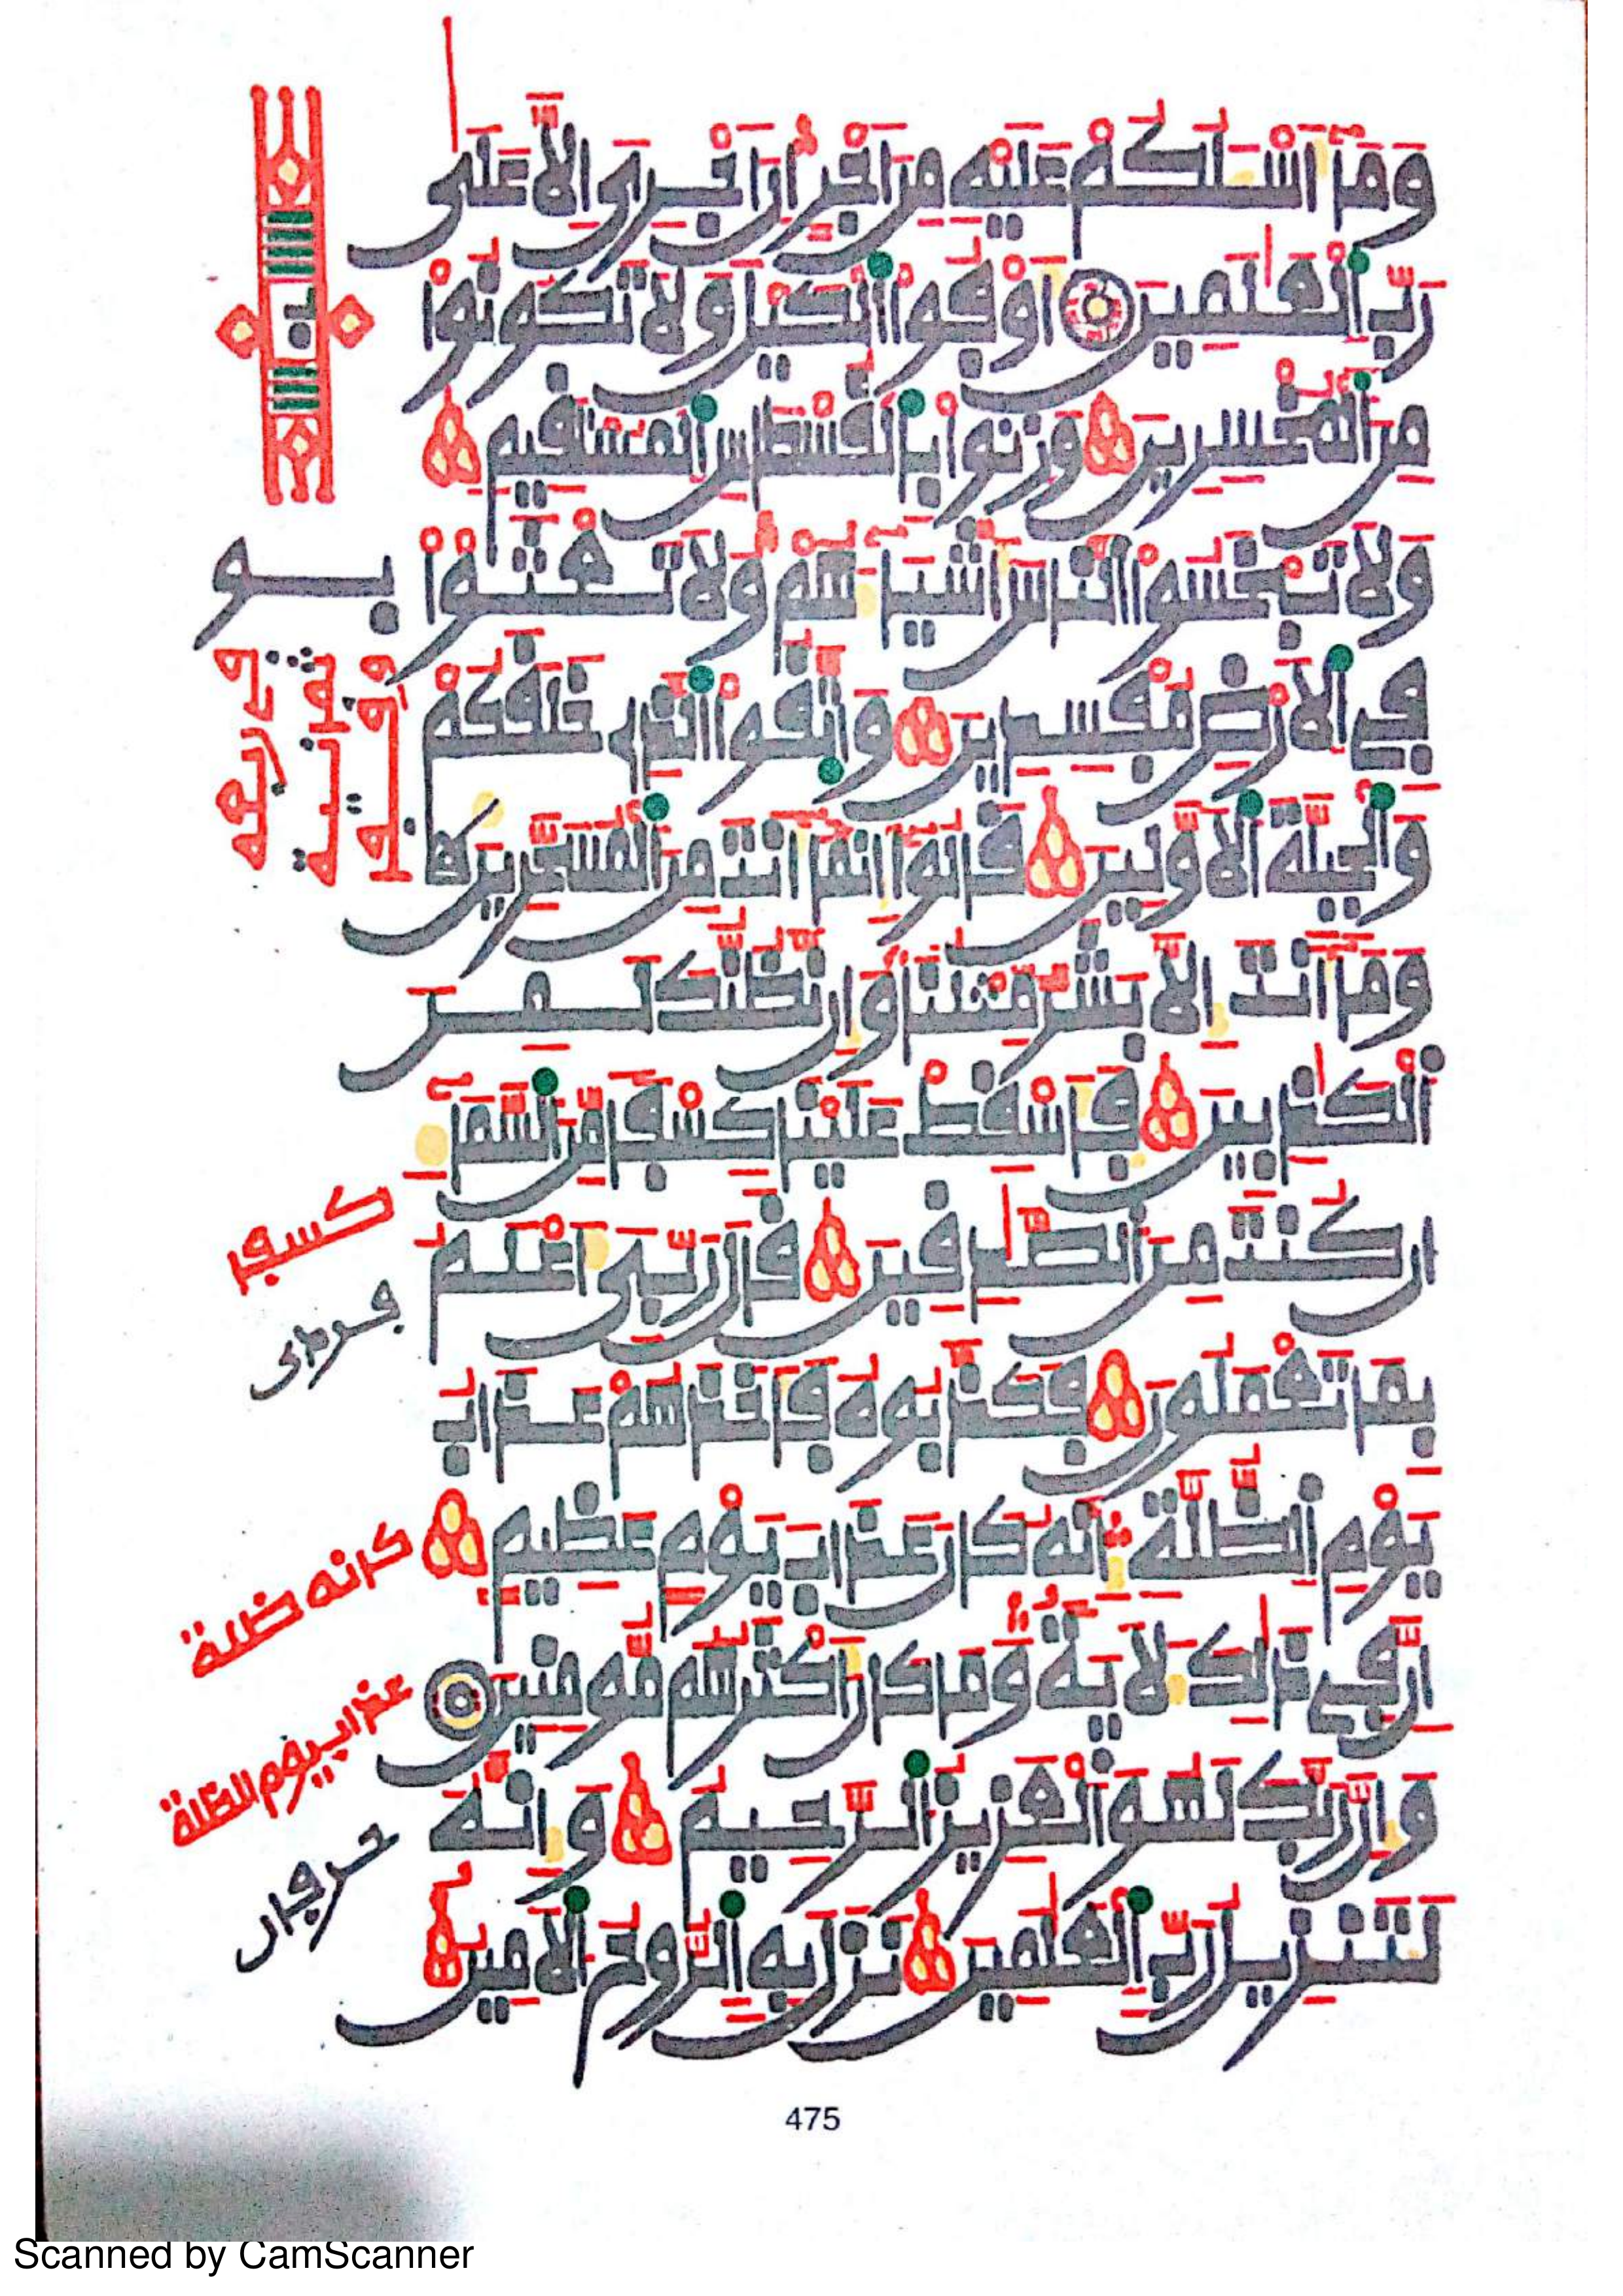 وَمَآ أَسْـَٔلُكُمْ عَلَيْهِ مِنْ أَجْرٍ إِنْ أَجْرِيَ إِلَّا عَلَىٰ
رَبِّ الْعَٰلَمِينَ أَوْفُوا الْكَيْلَ وَلَا تَكُونُوا
مِنَ الْمُخْسِرِينَ وَزِنُوا بِالْقُسْطَاسِ الْمُسْتَقِيمِ
وَلَا تَبْخَسُوا النَّاسَ أَشْيَآءَهُمْ وَلَا تَعْثَوْا
فِي الْأَرْضِ مُفْسِدِينَ وَاتَّقُوا الَّذِي خَلَقَكُمْ
وَالْجِبِلَّةَ الْأَوَّلِينَ قَالُوٓا إِنَّمَآ أَنتَ مِنَ الْمُسَحَّرِينَ
وَمَآ أَنتَ إِلَّا بَشَرٌ مِّثْلُنَا وَإِن نَّظُنُّكَ لَمِنَ
الْكَٰذِبِينَ فَأَسْقِطْ عَلَيْنَا كِسْفًا مِّنَ السَّمَآءِ
إِن كُنتَ مِنَ الصَّٰدِقِينَ قَالَ رَبِّيَ أَعْلَمُ
بِمَا تَعْمَلُونَ فَكَذَّبُوهُ فَأَخَذَهُمْ عَذَابُ
يَوْمِ الظُّلَّةِ إِنَّهُ كَانَ عَذَابَ يَوْمٍ عَظِيمٍ
إِنَّ فِي ذَٰلِكَ لَأٓيَةً وَمَا كَانَ أَكْثَرُهُم مُّومِنِينَ
وَإِنَّ رَبَّكَ لَهُوَ الْعَزِيزُ الرَّحِيمُ وَإِنَّهُ
لَتَنزِيلُ رَبِّ الْعَٰلَمِينَ نَزَلَ بِهِ الرُّوحُ الْأَمِينُ
475
Scanned by CamScanner